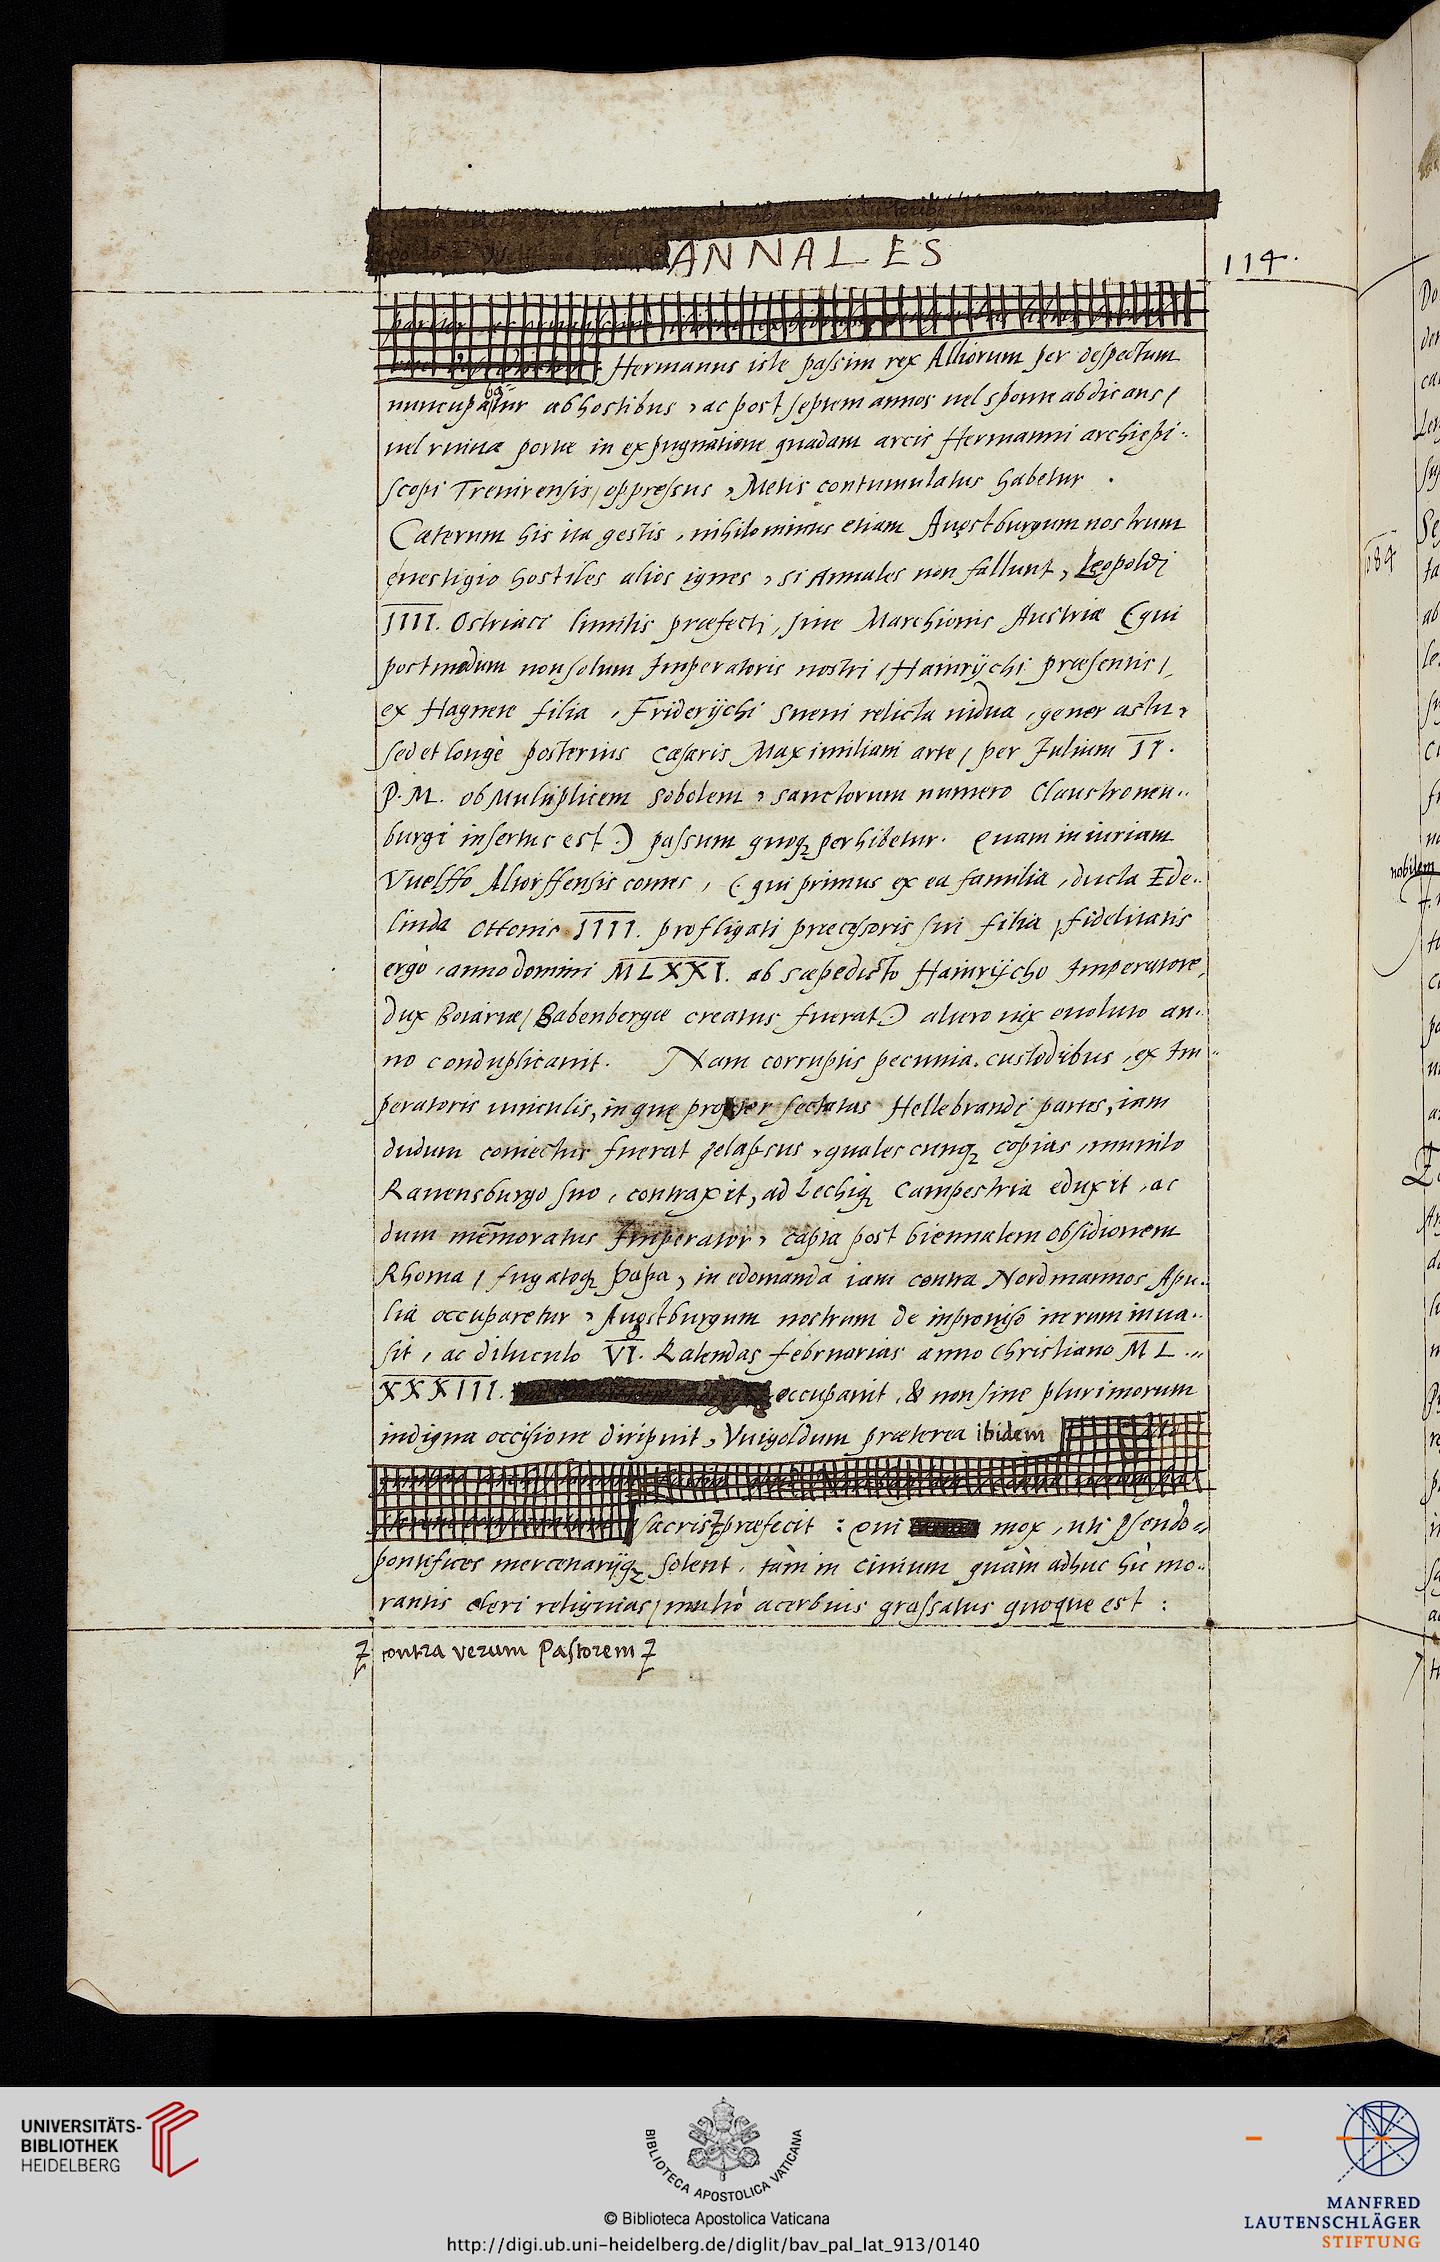 ANNALES
114.
Hermanus iste passim rex Alliorum per despectum
nuncupabatur ab hostibus, ac post septem annos uel sponte abdicans /
uel ruina portae in expugnatione quadam arcis Hermanni archiepi-
scopi Treuirensis / oppressus, Metis contumulatus habetur.
Caeterum his ita gestis, nihilominus etiam Augstburgum nostrum
e uestigio hostiles alios ignes, si Annales non fallunt, Leopoldi
IIII. Ostriaci limitis praefecti, siue Marchionis Austriae (qui
postmodum non solum Imperatoris nostri / Hainrÿchi praesentis /,
ex Hagnete filia, Friderÿchi Sueui relicta uidua, gener astu,
sed et longè posterius Caesaris Maximiliani arte / per Iulium II.
P. M. ob Multiplicem sobolem, sanctorum numero Claustronen-
burgi insertus est.) passum quoq; perhibetur. Quam iniuriam
Vuelffo Altorffensis comes, (qui primus ex ea familia, ducta Ede-
linda Ottonis IIII. profligati praecessoris sui filia / fidelitatis
ergò, anno domini MLXXI. ab saepedicto Hainrÿcho Imperatore,
dux Boiariae / Babenbergae creatus fuerat) altero uix euoluto an-
no conduplicauit. Nam corruptis pecunia custodibus, ex Im-
peratoris uinculis, in quae propter sectatas Hellebrandi partes, iam
dudum coniectus fuerat relapsus, qualescunq; copias, munito
Rauensburgo suo, contraxit, ad Lechiq; Campestria eduxit, ac
dum memoratus Imperator, capta post biennalem obsidionem
Rhoma / fugatoq; papa, in edomanda iam contra Nordmannos Apu-
lia occuparetur, Augstburgum nostrum de inprouiso iterum inua-
sit, ac diluculo VI. Kalendas februarias anno Christiano ML-
XXXIII. occupauit, & non sine plurimorum
indigna occisione diripuit, Vuigoldum praeterea ibidem
sacris praefecit : Qui mox, uti Pseudo-
pontifices mercenarijq; solent, tàm in ciuium quàm adhuc hìc mo-
rantis cleri reliquias / multò acerbius grassatus quoque est :
contra verum Pastorem
184
nobilem
UNIVERSITÄTS-
BIBLIOTHEK
HEIDELBERG
BIBLIOTECA APOSTOLICA VATICANA
© Biblioteca Apostolica Vaticana
http://digi.ub.uni-heidelberg.de/diglit/bav_pal_lat_913/0140
MANFRED
LAUTENSCHLÄGER
STIFTUNG